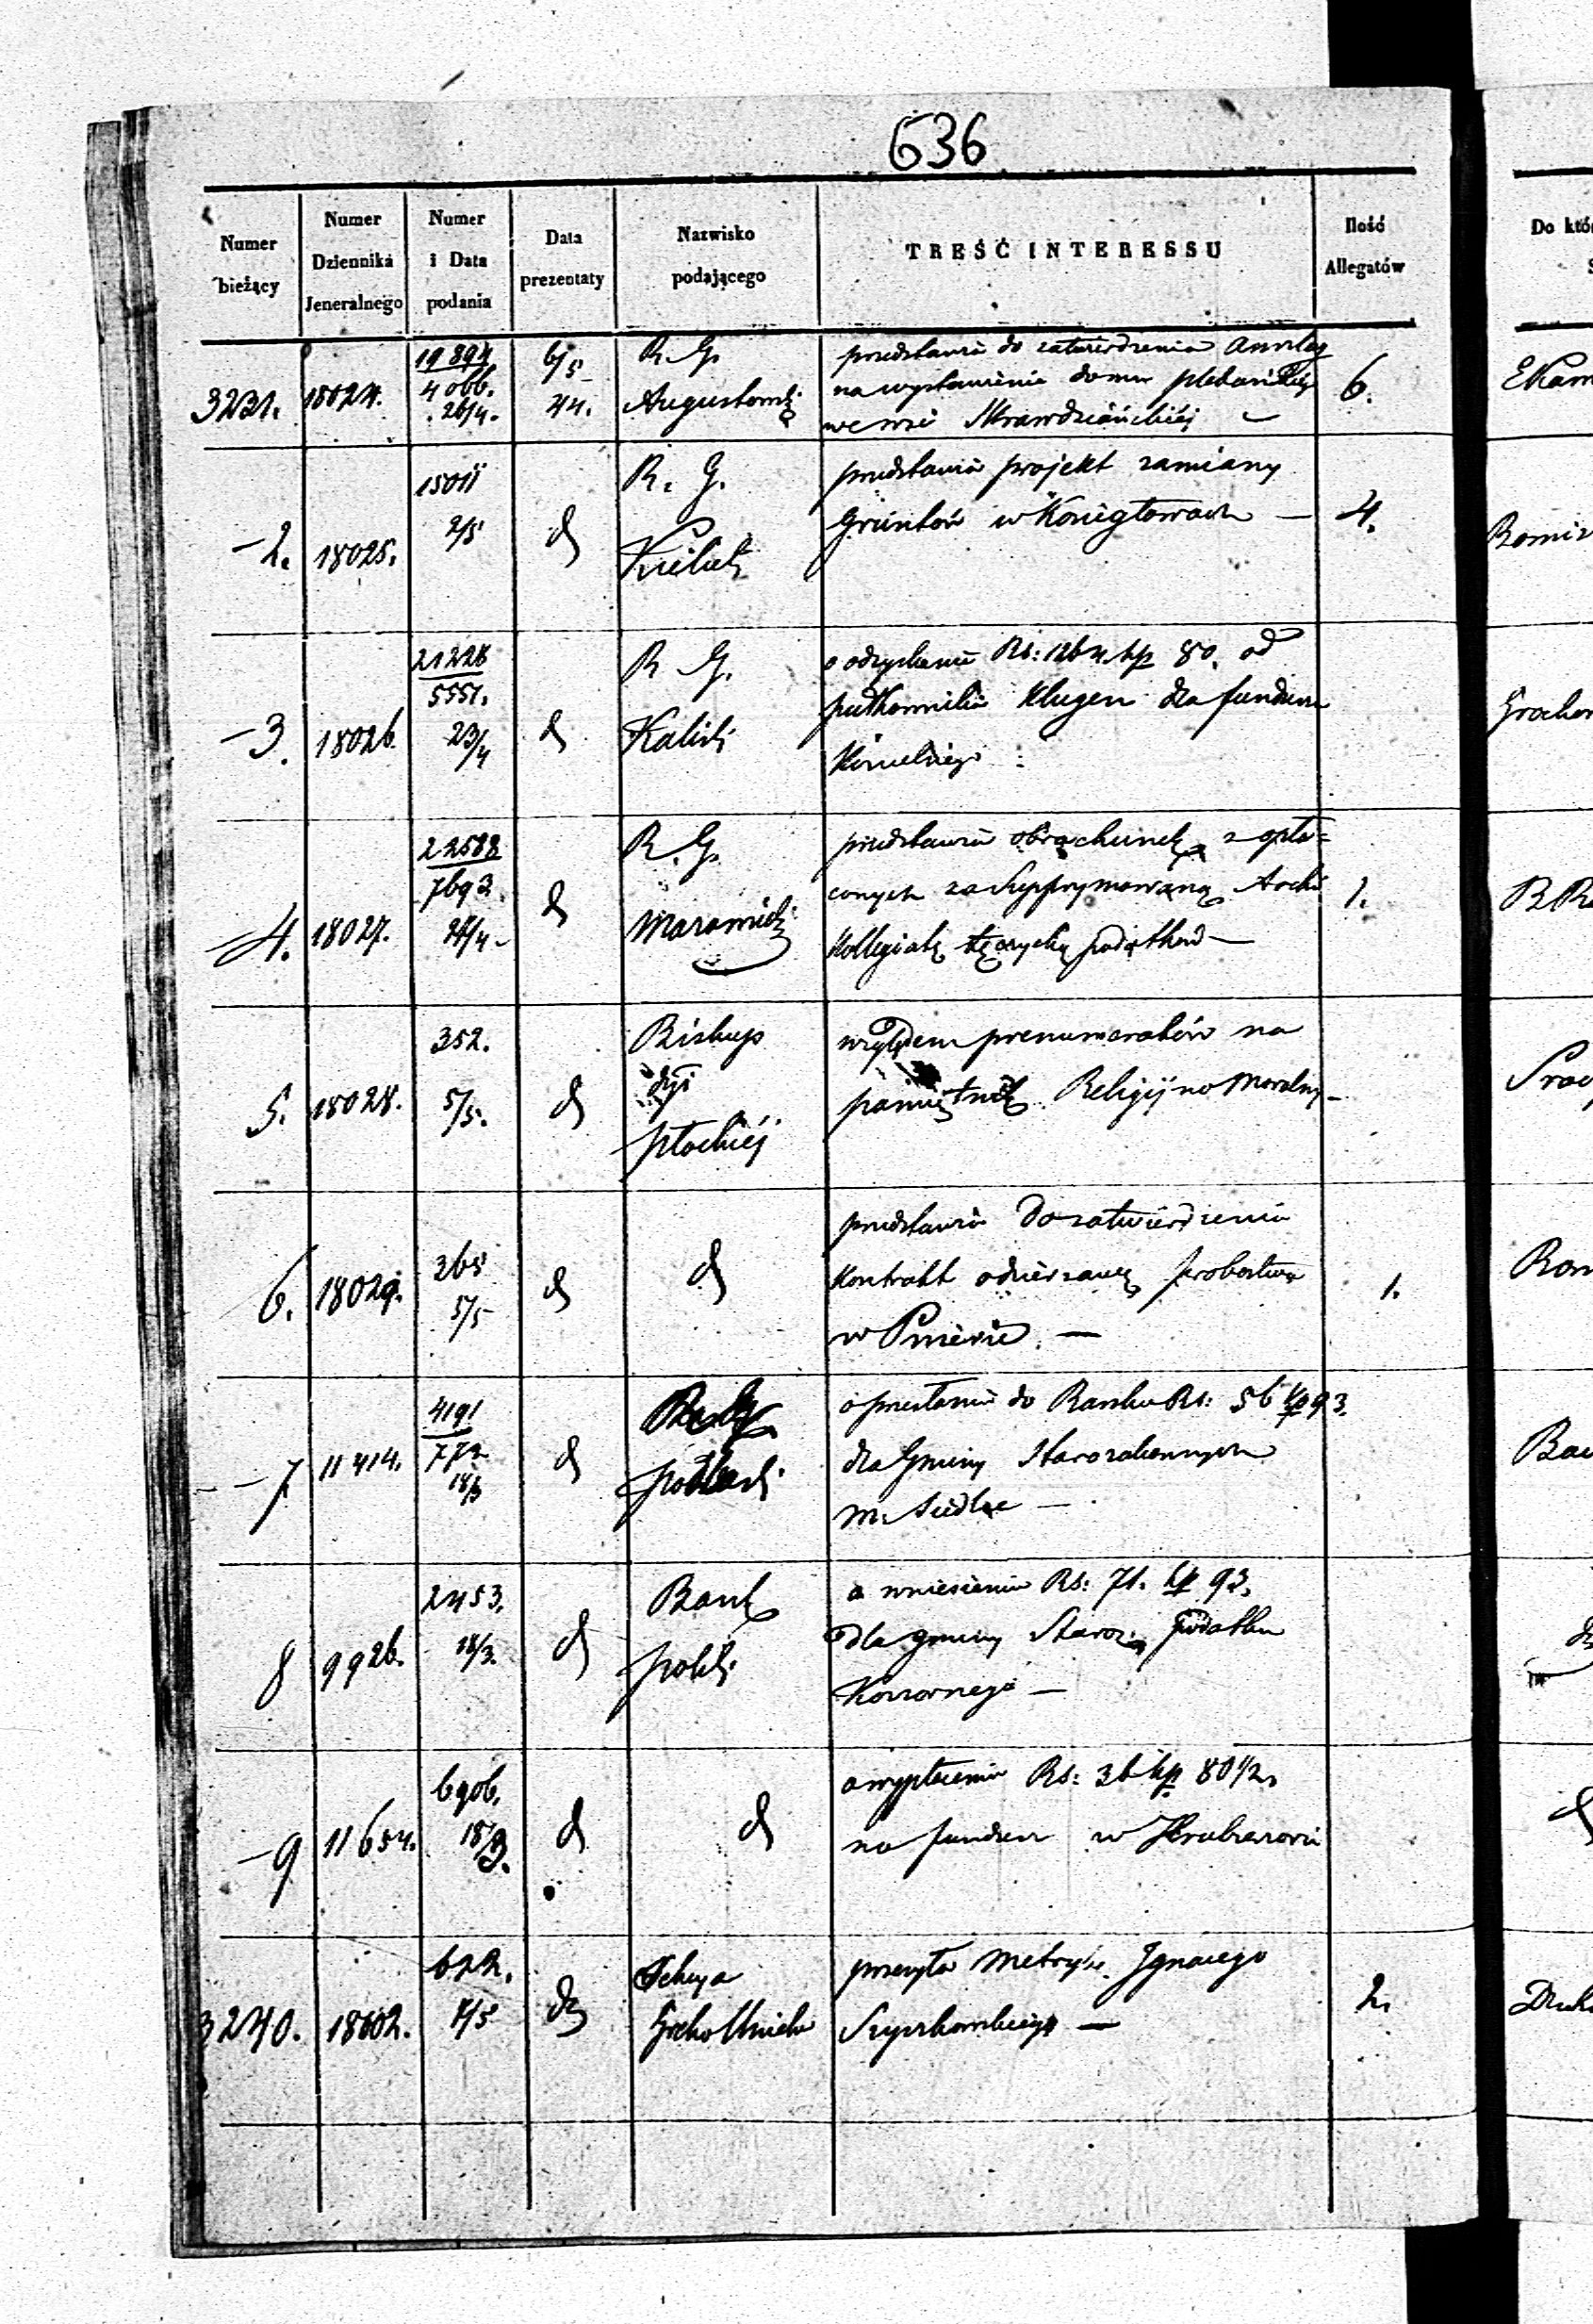 636
Numer bieżący
Numer Dziennika Jeneralnego
Numer i Data podania
Data prezentaty
Nazwisko podającego
TREŚĆ INTERESSU
Ilość Allegatów
3231. 18024. 19894 4066. 26/4. 6/5 44. R. G. Augustowsk. 6.
przedstawia do zatwierdzenia Anszlag
na wystawienie domu plebańskiej
we wsi
-2. 18025. 15011 2/5 d R. G. Kielecki 4.
przedstawia projekt zamiany
Gruntów w Koziegłowach —
-3. 18026. 21228 5551. 23/4 d R. G. Kaliski
o odzyskanie Rs: 1264 kp 80. od
Klugen dla funduszu
Kościelnego
-4. 18027. 22588 7693. 24/4 - d R. G. Mazowiecki 1.
przedstawia obrachunek z opła=
conych za Suprymowaną Archi
Kollegiatę Łęczycką podatków —
5. 18028. 352. 5/5. d Biskup dyi płockiej
względem prenumeratorów na
pamiętnik Religijno Moralny -
6. 18029. 365 5/5 d d 1.
przedstawia do zatwierdzenia
Kontrakt odzierzawy probostwa
w Pniewie. —
-7 11414. 4191 772 18/3 d R. G. podlaski
o przesłanie do Banku Rs: 56 kp 93.
dla Gminy Starozakonnych
m. Siedlce —
8 9926. 2453. 18/3. d Bank polski
o wniesienie Rs: 71. kp 93.
dla gminy Staroz. podatku
Koszernego —
-9 11654. 6906. 18/3. d d
o wypłacenie Rs: 36 kp 80 1/2.
na fundusz w Hrubieszowie
3240. 18602. 622. 7/5 d 2.
przesyła Metrykę Ignacego
Szyszkowskiego —